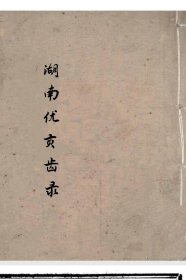 湖南优贡齿录